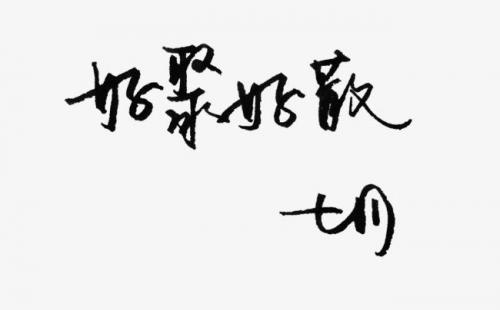 好聚好散
七月